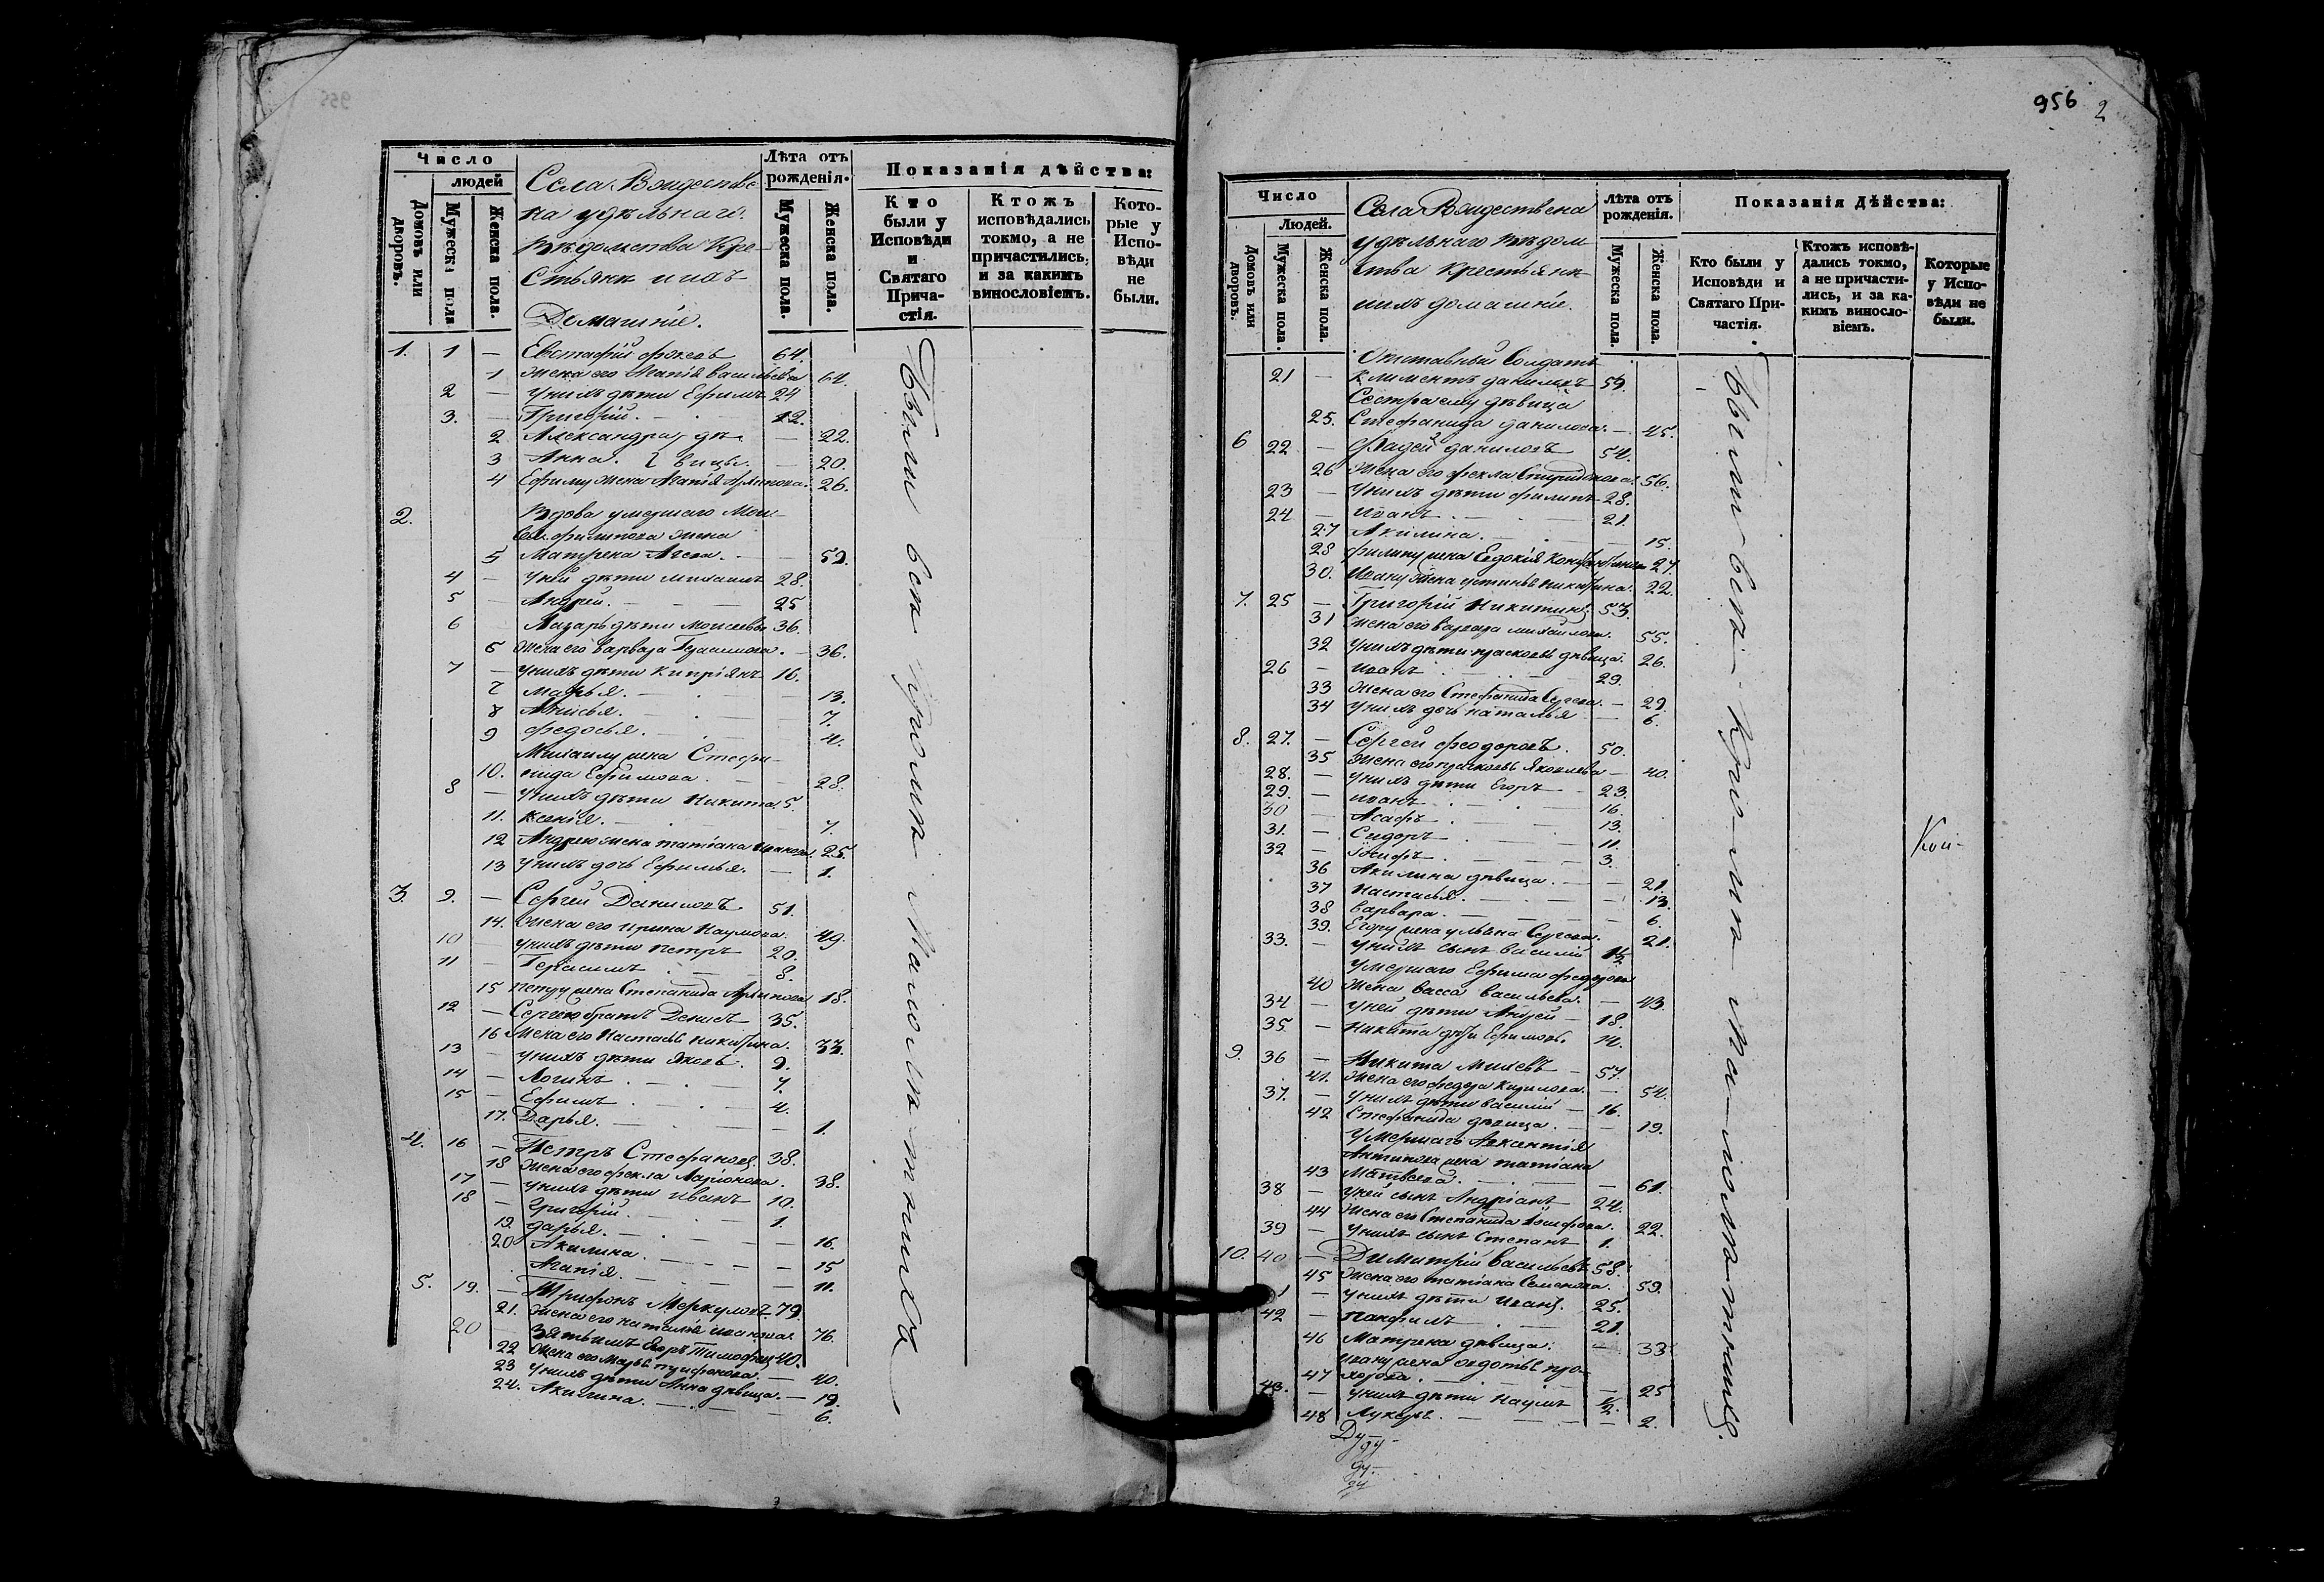 956 2
Число
людей
Домовъ или дворовъ.
Мужеска пола
Женска пола.
Села Рождестве
на удѣльнаго
вѣдомства Кре-
стьяне и ихъ
Домашніе.
Лѣта отъ рожденія.
Мужеска пола.
Женска пола.
Показанія дѣйства:
Кто были у Исповѣди и Святаго Причастія.
Ктожъ исповѣдались токмо, а не причастились, и за какимъ винословіемъ.
Которые у Исповѣди не были.
Были вси кромѣ малолѣтнихъ
1. 1 — Евстафій 64.
1 Жена его Агапія Васильева 64.
2 — У нихъ дѣти Ефимъ 24
3. — Григорій. — 12.
2 Александра, дѣ- — 22.
3 Анна. вицы. — 20.
4 Ефиму жена Агапія Архипова. 26.
2. Вдова умершаго Мои-
сея Филипова жена
5 Матрена — 52.
4 — У ней дѣти Михаилъ 28.
5 — Андрей. — 25
6 Лазарь дѣти Моисеевы 36.
6 Жена его Варвара Герасимова. — 36.
7 — У нихъ дѣти Кипріянъ 16.
7 Марья. — 13.
8 Анисья. — 7.
9 Федосья. — 4.
Михаилу жена Стефа-
10. нида Ефимова. — 28.
8 — У нихъ дѣти Никита 5.
11. Ксенія. — 7.
12 Андрею жена Татіана Иванова. 25.
13 У нихъ дочь Ефимья. — 1.
3. 9. — Сергей Даниловъ. 51.
14. Жена его Ирина Наумова. 49.
10 — У нихъ дѣти Петръ 20.
11 — Герасимъ — 8.
15 Петру жена Степанида Архипова 18.
12 — Сергею братъ Денисъ 35.
16 Жена его Настасья Никитина. 33.
13 — У нихъ дѣти Яковъ. 9.
14 — Логинъ. — 7.
15 — Ефимъ — 4.
17. Дарья. — 1.
4. 16 — Петръ Стефановъ. 38.
18 Жена его Фекла Ларіонова. 38.
17 — У нихъ дѣти Иванъ 10.
18 — Григорій. — 1.
19. Дарья. — 16.
20 Акилина. — 15
Агапія. — 11.
5. 19. — Трифонъ Меркуловъ 79.
21. Жена его Наталья Иванова. 76.
20 — Зять имъ Егоръ Тимофеев 40.
22 Жена его Марья Трифонова. — 40.
23 У нихъ дѣти Анна дѣвица. — 19.
24. Акилина. — 6.
Число
Людей.
Домовъ или дворовъ.
Мужеска пола.
Женска пола.
Села Рождествена
удѣльнаго вѣдом
ства крестьяне
и ихъ домашніе.
Лѣта отъ рожденія.
Мужеска пола.
Женска пола.
Показанія Дѣйства:
Кто были у Исповѣди и Святаго Причастія.
Ктожъ исповѣдались токмо, а не причастились, и за какимъ винословіемъ.
Которые у Исповѣди не были.
Были вси кро-мѣ ма-лолѣ-тнихъ.
Отставный Солдатъ
21 — Климентъ Даниловъ 59.
Сестра ему дѣвица
25. Стефанида Данилова. — 45.
6 22 — Фадей Даниловъ 54.
26 Жена его Фекла Спиридонова. 56.
23 — У нихъ дѣти Филипъ 28.
24 — Иванъ. — 21.
27 Акилина. — 15.
28 Филипу жена Евдокія 27.
30. Ивану жена Устинья Никитина. 22.
7. 25 — Григорій Никитинъ 53.
31 Жена его Варвара Михайлова. 55.
32 У нихъ дѣти Прасковья дѣвица. 26.
26 — Иванъ — 29.
33 Жена его Стефанида Сергева. — 29.
34 У нихъ дочь Наталья — 6.
8. 27. — Сергей Феодоровъ. 50.
35 Жена его Прасковья Яковлева — 40.
28. — У нихъ дѣти Егоръ — 23.
29. — Иванъ — 16.
30 — Асафъ. — 13.
31. — Сидоръ — 11.
32 — Іосифъ. — 3.
36 Акилина дѣвица. — 21.
37 Настасья. — 13.
38 Варвара. — 6.
39. Егору жена Ульяна Сергева. 21.
33. — У нихъ сынъ Василій
Умершаго Ефима Федорова
40 Жена Васса Васильева. — 43.
34 — У ней дѣти Андрей — 18.
35 — Никита дѣти Ефимовы. 14.
9. 36 — Никита — 57.
41. Жена его Федора Кирилова. — 54.
37. — У нихъ дѣти Василій — 16.
42 Стефанида дѣвица. — 19.
Умершаго
Антипова жена Татіана
43 Матвеева. — 61.
38 — У ней сынъ Андріанъ — 24.
44 Жена его Степанида Іосифова. 22.
39 — У нихъ сынъ Степанъ 1.
10. 40 — Димитрій Васильевъ 58.
45 Жена его Татіана Семенова. 59.
— У нихъ дѣти Иванъ. 25.
42 — Панфилъ — 21.
46 Матрена дѣвица. — 33
Ивану жена Федотья Про-
47 хорова. — 25
43. — У нихъ дѣти Наумъ ½.
48 Лукерья. — 2.
Ду-
ду-
ду-
ду
Кои-